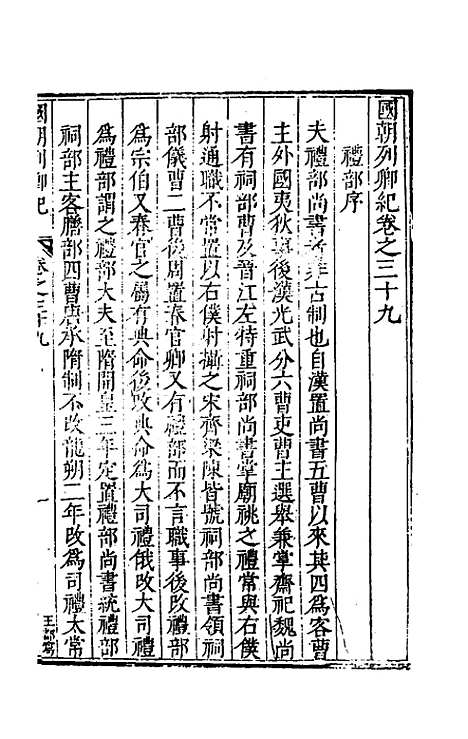 國朝列卿紀卷之三十九
禮部序
夫禮部尚書者古制也自漢置尚書五曹以來其四為客曹
主外國夷狄事後漢光武分六曹吏曹主選舉兼掌齋祀魏尚
書有祠部曹及晉江左特重祠部尚書掌廟祧之禮常與右僕
射通職不常置以右僕射攝之宋齊梁陳皆號祠部尚書領祠
部儀曹二曹後周置春官卿又有禮部而不言職事後改禮部
為宗伯又春官之屬有典命後改典命為大司禮俄改大司禮
為禮部謂之禮部大夫至隋開皇三年定置禮部尚書統禮部
祠部主客膳部四曹唐承隋制不改龍朔二年改為司禮太常
國朝列卿紀 卷之三十九 一